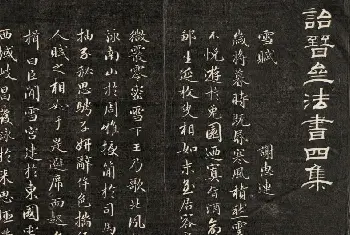 詒晉亝法書四集
雪賦
謝惠連
歲將暮時既昏寒風積愁雲
不悅遊於兔園迺置旨酒
鄒生延枚叟相如末至居客
微霰零密雪下王乃歌北風
詠南山於周雅授簡於司馬
抽子秘思騁子妍辭侔色揣
人賦之相如於是避席而起
揖曰臣聞雪宮建於東國
西域岐昌發詠於來思姬